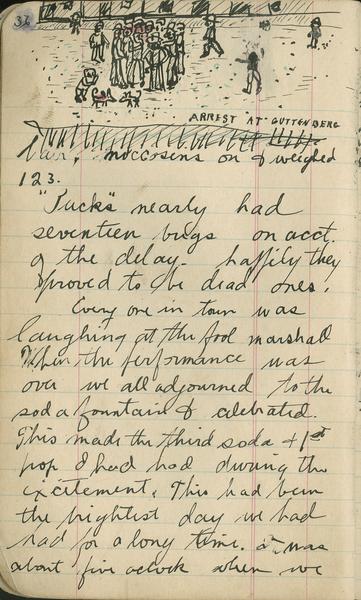 36
ARREST AT GUTTENBERG
moccosins on & weighed
123.
"Tucks" nearly had
seventeen bugs on acct.
of the delay. happily they
proved to be dead ones.
Every one in town was
laughing at the fool marshall
When the performance was
over we all adjourned to the
soda fountain & celebrated.
This made the third soda & 1st
pop I had had durring the
excitement. This had been
the brightest day we had
had for a long time. It was
about five oclock when we